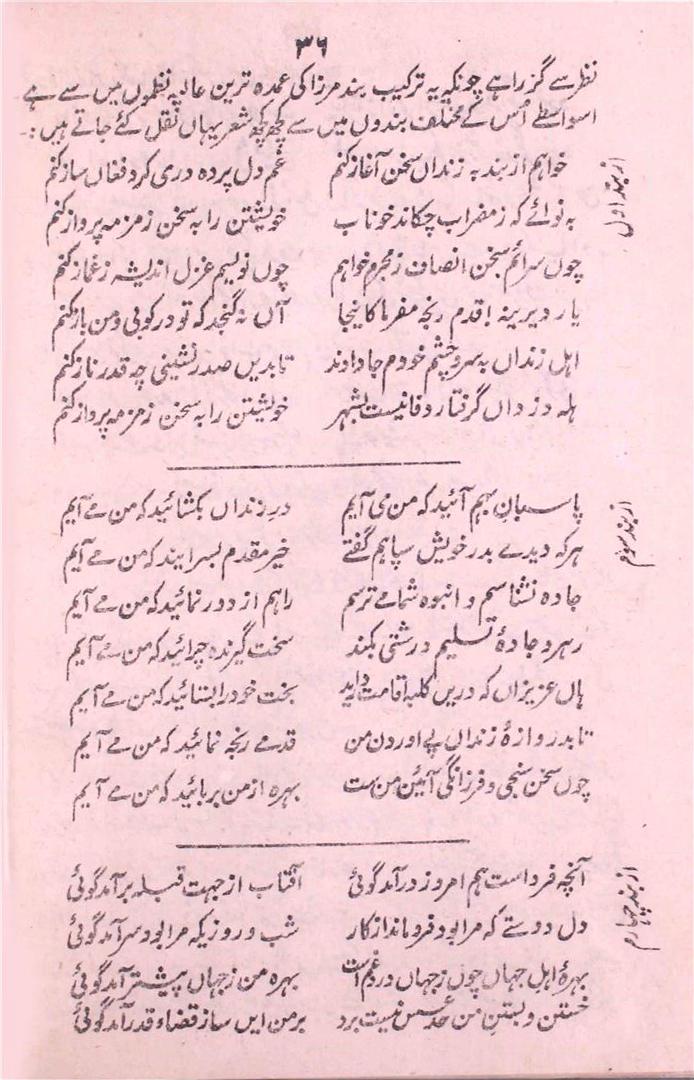 ۳۶
نظر سے گزرا ہے چونکہ یہ ترکیب بند مرزا کی عمدہ ترین عالیہ نظموں میں سے ہے۔
اسواسطے اُس کے مختلف بندوں میں سے کچھ کچھ شعر یہاں نقل کئے جاتے ہیں :۔
از بند اول
خواہم از بند بہ زنداں سخن آغاز کنم غم دل پردہ دری کرد فغاں ساز کنم
بہ نوائے کہ ز مضراب چکاند خوناب خویشتن را بہ سخن زمزمہ پرداز کنم
چوں سرائم سخن انصاف ز مجرم خواہم چوں نویسم غزل اندیشہ ز غماز کنم
یار دیرینہ قدم رنجہ مفرما کاینجا آں نہ گنجد کہ تو در کوبی و من باز کنم
اہل زنداں بہ سر و چشم خودم جا دادند تا بدیں صدر نشینی چہ قدر ناز کنم
ہلہ دزداں گرفتار وفا نیست بشہر خویشتن را بہ سخن زمزمہ پرداز کنم
از بند سوم
پاسبان بہم آئید کہ من می آیم در زنداں بکشائید کہ من مے آیم
ہر کہ دیدے بدر خویش سپاہم گفتے خیر مقدم بسرایند کہ من مے آیم
جادہ نشناسم و انبوہ شما مے ترسم راہم از دور نمائید کہ من مے آیم
رہرو جادۂ تسلیم درشتی بکند سخت گیرندہ چرائید کہ من مے آیم
ہاں عزیزاں کہ دریں کلبہ اقامت دارید بخت خود را بستائید کہ من مے آیم
تا بدروازۂ زنداں پے آوردن من قدمے رنجہ نمائید کہ من مے آیم
چوں سخن سنجی و فرزانگی آئین من ست بہرہ از من بربائید کہ من مے آیم
از بند چہارم
آنچہ فرداست ہم امروز در آمد گوئی آفتاب از جہت قبلہ بر آمد گوئی
دل و دستے کہ مرا بود فرو ماند از کار شب و روزیکہ مرا بود سر آمد گوئی
بہرۂ اہل جہاں چوں ز جہاں درد و غم است بہرہ من ز جہاں پیشتر آمد گوئی
خستن و بستن من حد عسس نیست برد بر من ایں ساز قضا و قدر آمد گوئی